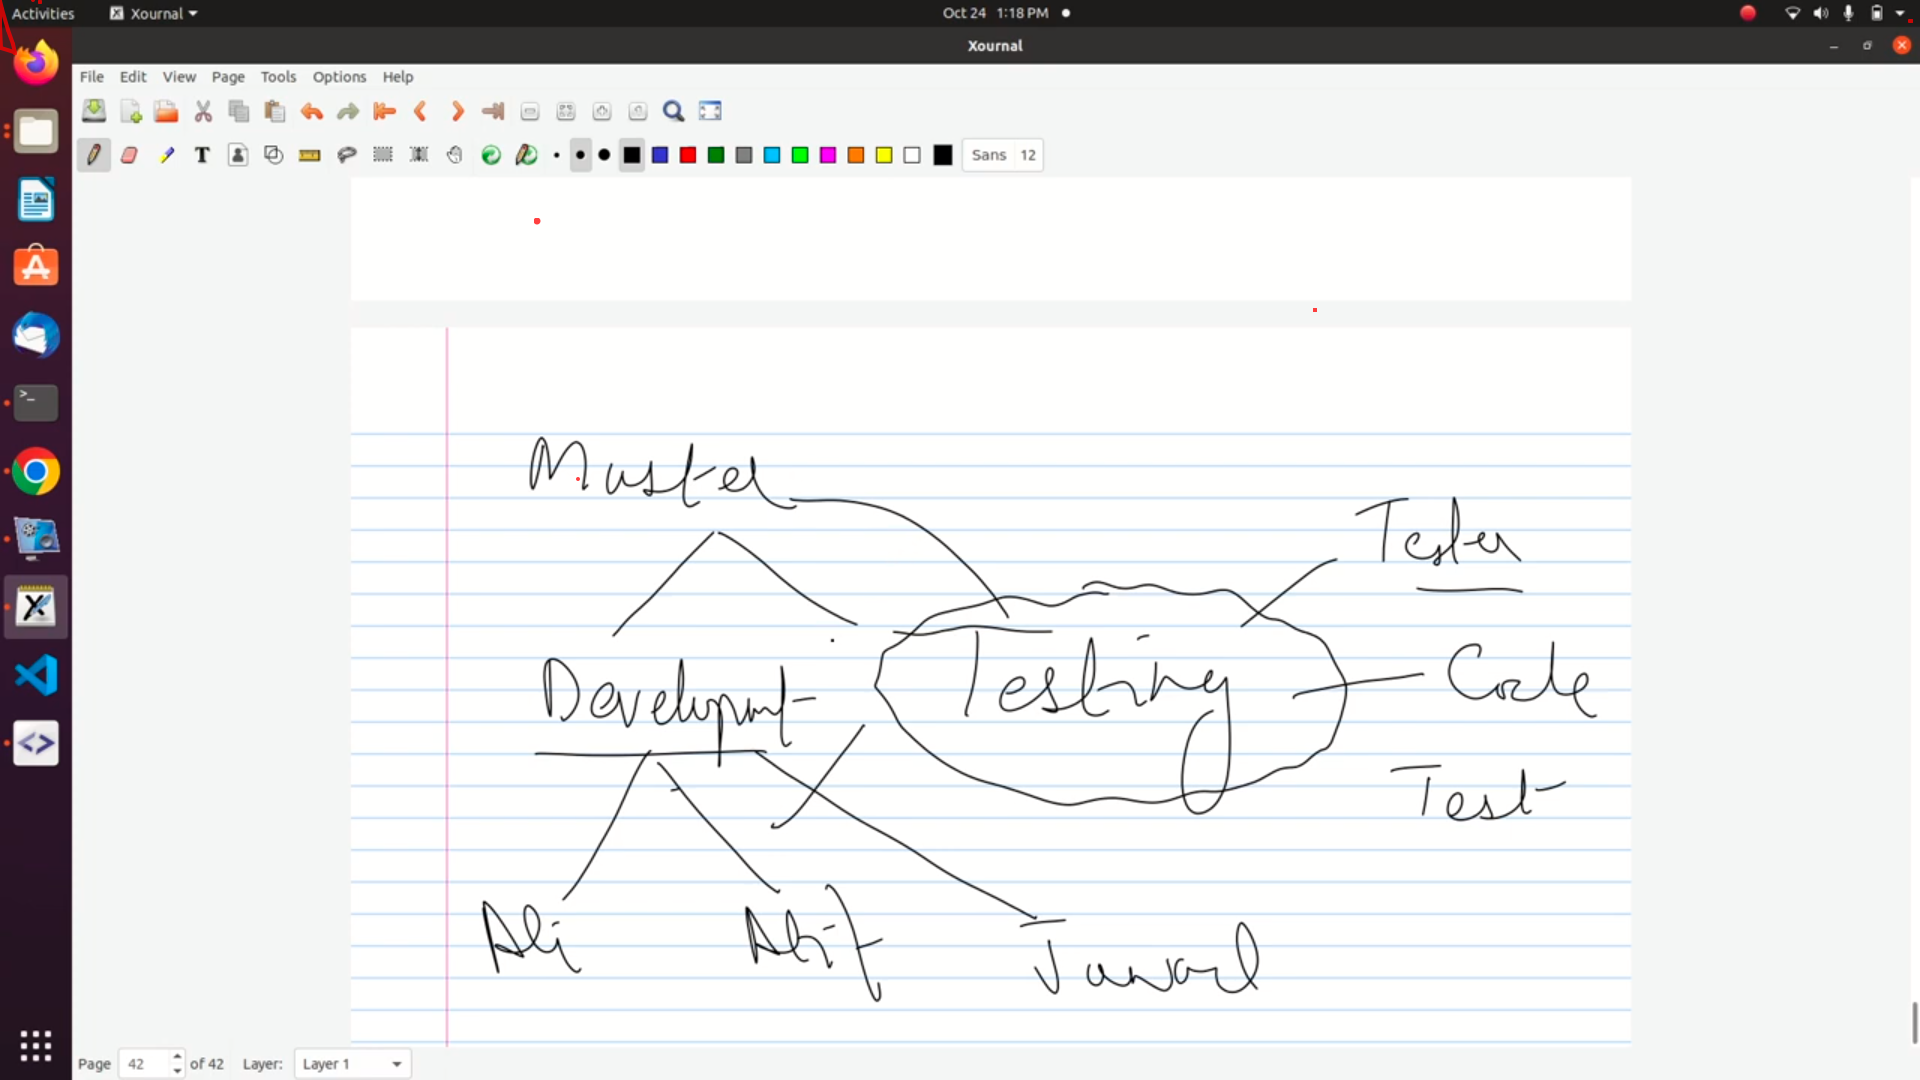 Activities Xournal Oct 24 1:18 PM
Xournal
File Edit View Page Tools Options Help
Sans 12
Master
Tester
Developmt Testing Code
Test
Ali Atif Jawad
Page 42 of 42 Layer: Layer 1